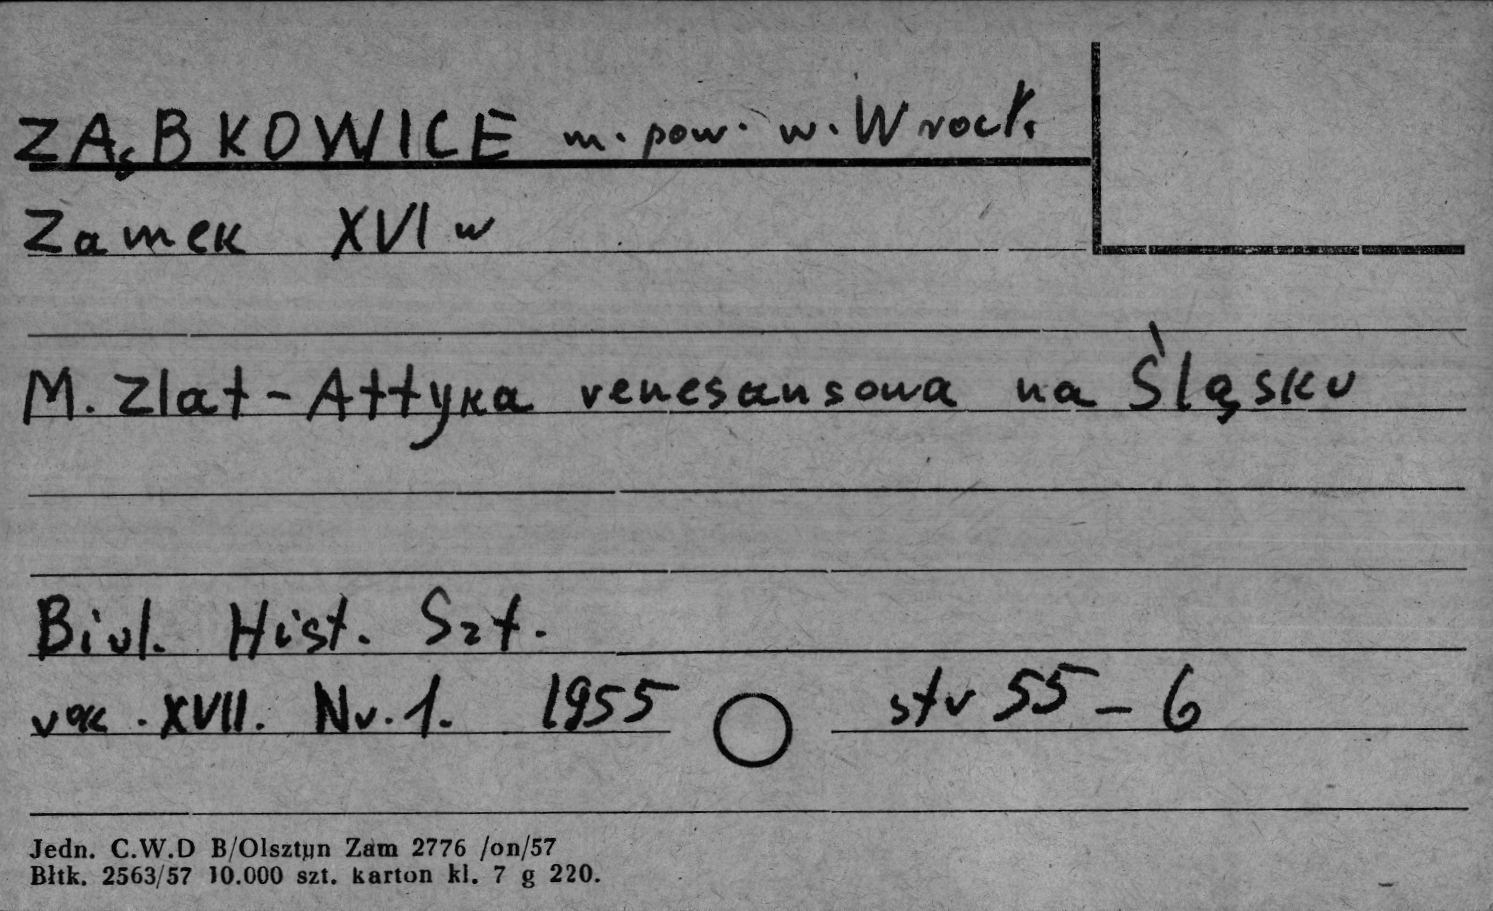 ZĄBKOWICE m. pow. w. Wrocł.
Zamek XVI w
M. Zlat - Attyka renesansowa na Śląsku
Biul. Hist. Szt.
rok . XVII. Nr. 1. 1955 str 55 - 6
Jedn. C.W.D B/Olsztyn Zam 2776 /on/57
Błtk. 2563/57 10.000 szt. karton kl. 7 g 220.